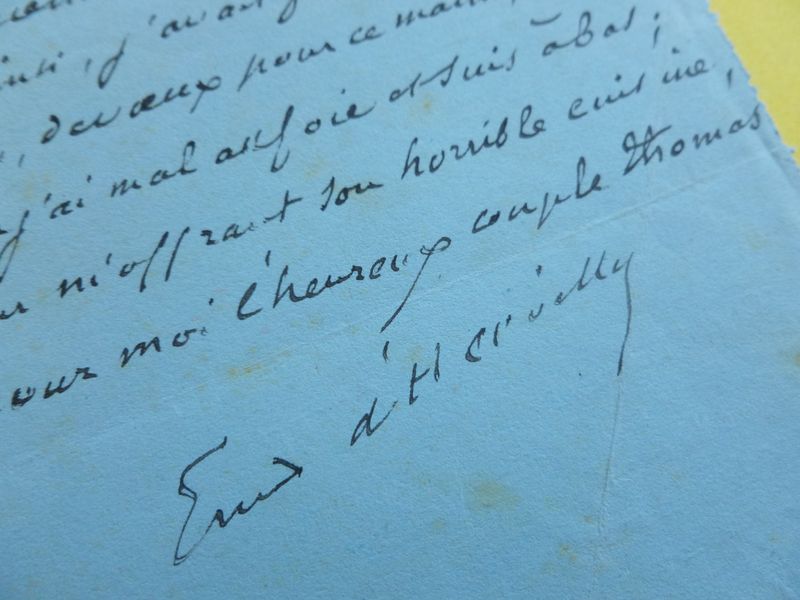 insi, j'avais
, devaux pour ce matin,
j'ai mal au foie et suis à bas ;
m'offrant son horrible cuisine,
our moi l'heureux couple Thomas
d'Hervilly